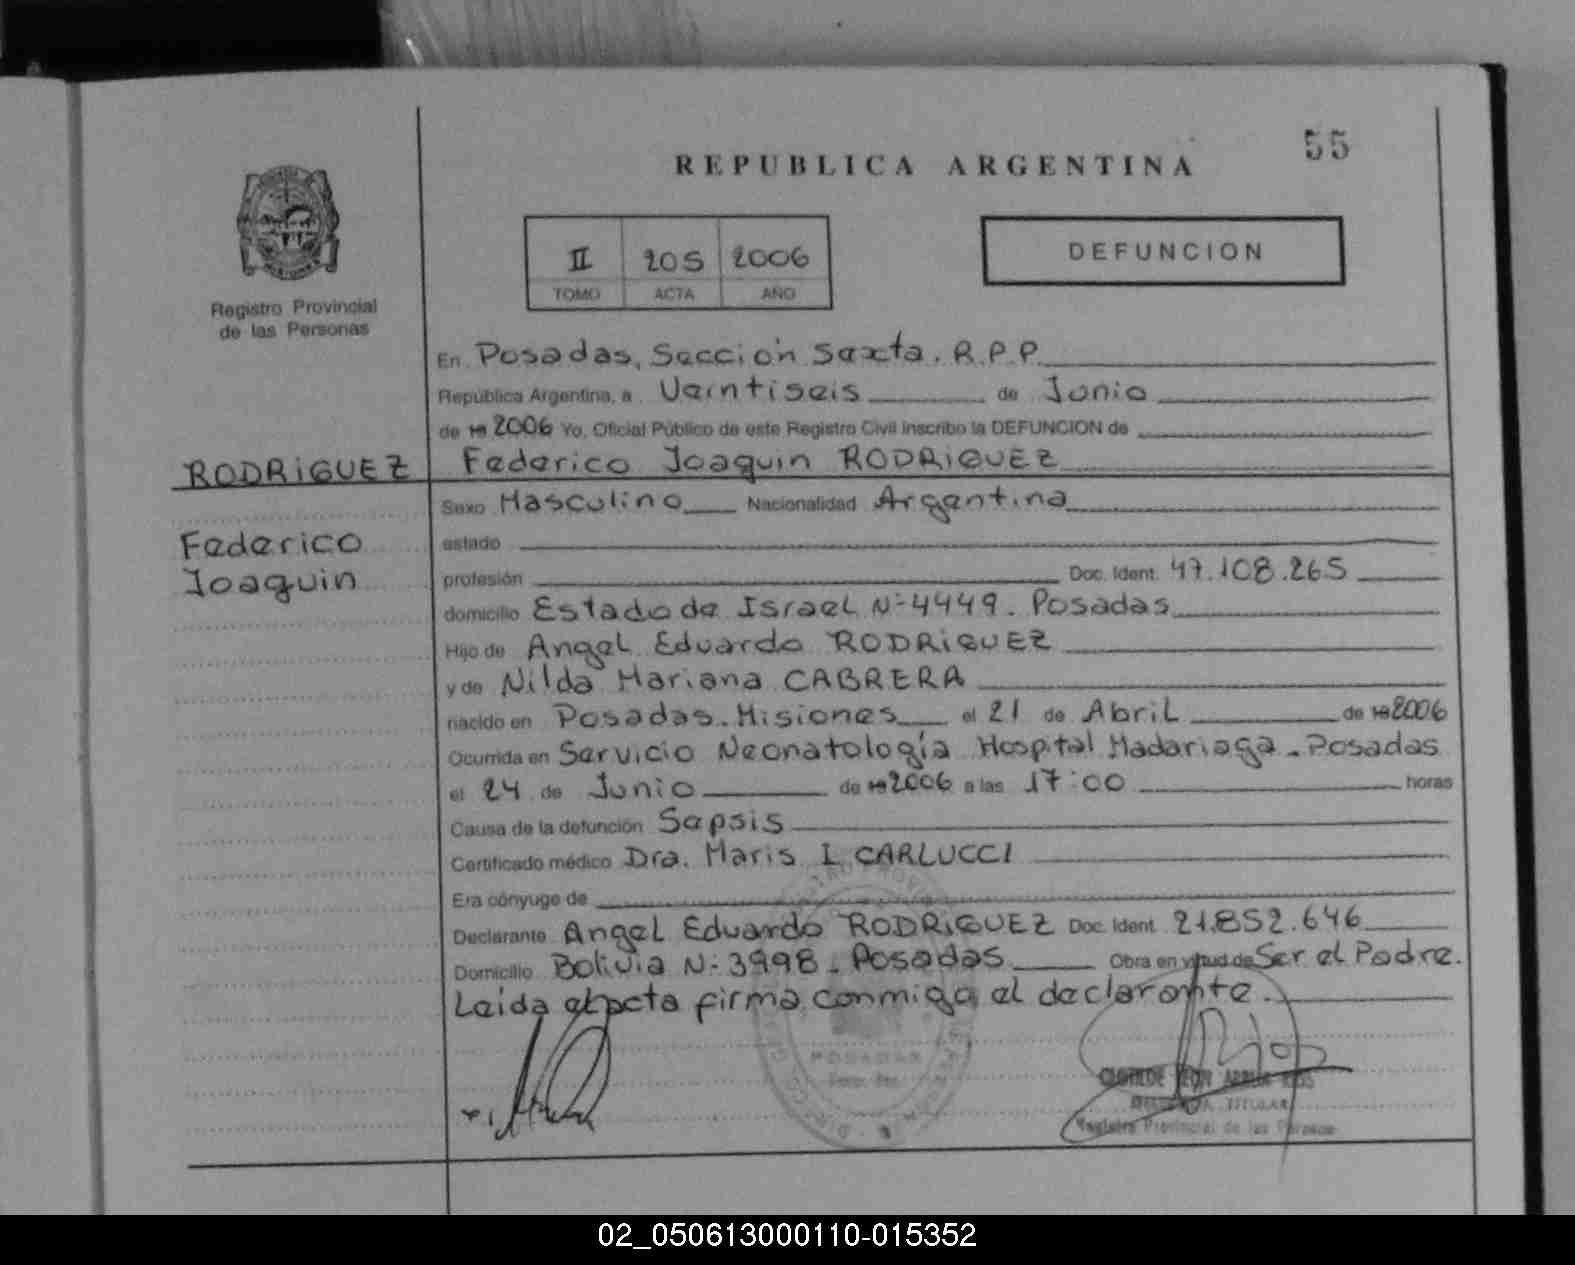 55
REPUBLICA ARGENTINA
II 205 2006
TOMO ACTA AÑO
DEFUNCION
Registro Provincial
de las Personas
En Posadas, Sección Sexta. R.P.P.
República Argentina, a Veintiseis de Junio
de 19 2006 Yo, Oficial Público de este Registro Civil inscribo la DEFUNCION de
RODRIGUEZ Federico Joaquin RODRIGUEZ
Sexo Masculino Nacionalidad Argentina
Federico estado
Joaquin profesión Doc. Ident. 47.108.265
domicilio Estado de Israel Nº 4449. Posadas
Hijo de Angel Eduardo RODRIGUEZ
y de Nilda Mariana CABRERA
nacido en Posadas. Misiones el 21 de Abril de 19 2006
Ocurrida en Servicio Neonatología Hospital Madariaga - Posadas
el 24 de Junio de 19 2006 a las 17:00 horas
Causa de la defunción Sepsis
Certificado médico Dra. Maris I. CARLUCCI
Era cónyuge de
Declarante Angel Eduardo RODRIGUEZ Doc. Ident. 21.852.646
Domicilio Bolivia Nº 3998 - Posadas Obra en virtud de Ser el Padre.
Leida el acta firma conmigo el declarante.
POSADAS
TITULAR
Registro Provincial de las Personas
02_050613000110-015352